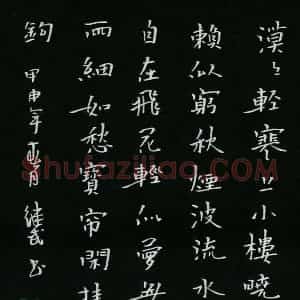 漠〻輕寒上小樓曉
賴似窮秋煙波流水
自在飛花輕似夢無
雨細如愁寶帘閑挂
鉤 甲申年 書
Shufaziliao.com